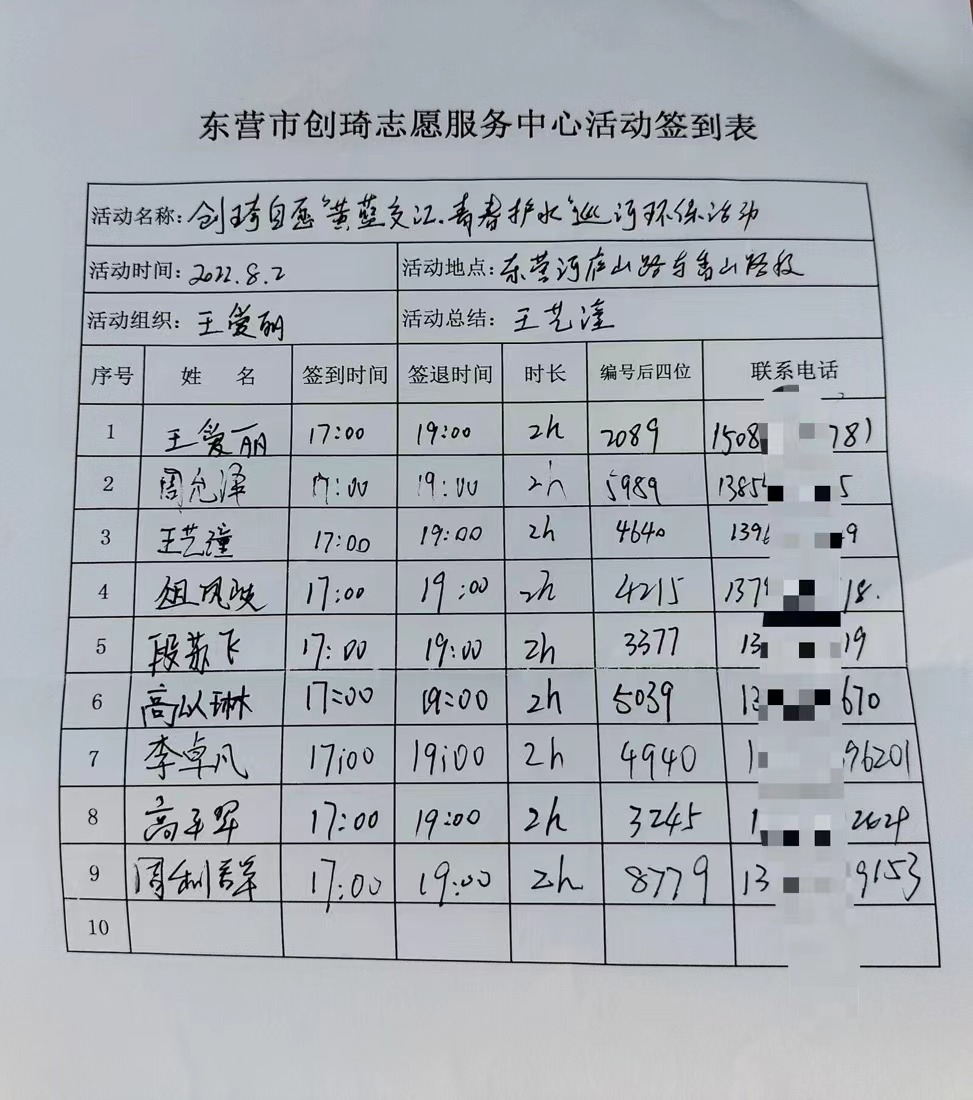 东营市创琦志愿服务中心活动签到表
活动名称:创琦自愿"黄蓝交汇.青春护水"巡河环保活动
活动时间:2022.8.2 活动地点:东营河庐山路与香山路段
活动组织:王爱丽 活动总结:王艺潼
序号 姓名 签到时间 签退时间 时长 编号后四位 联系电话
1 王爱丽 17:00 19:00 2h 2089 1508 781
2 周允泽 17:00 19:00 2h 5989 1385 5
3 王艺潼 17:00 19:00 2h 4640 1396 9
4 17:00 19:00 2h 4215 137 18.
5 段苏飞 17:00 19:00 2h 3377 13 19
6 高以琳 17:00 19:00 2h 5039 13 670
7 李卓凡 17:00 19:00 2h 4940 1 96201
8 17:00 19:00 2h 3245 1 2624
9 周利群 17:00 19:00 2h 8779 13 9153
10